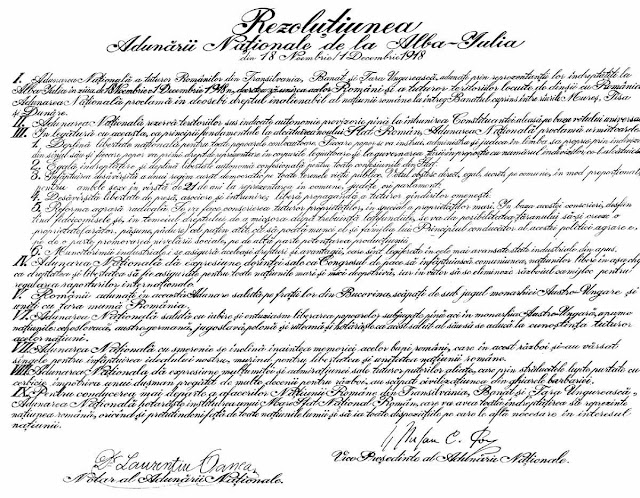 Rezoluțiunea
Adunării Naționale de la Alba-Iulia
din 18 Noiembrie/1 Decembrie 1918
I. Adunarea Națională a tuturor Românilor din Transilvania, Banat și Țara Ungurească, adunați prin reprezentanții lor îndreptățiți la
Alba-Iulia în ziua de 18 Noiembrie/1 Decembrie 1918, decretează unirea acelor Români și a tuturor teritoriilor locuite de dânșii cu România.
Adunarea Națională proclamă îndeosebi dreptul inalienabil al națiunii române la întreg Banatul cuprins între râurile Mureș, Tisa
și Dunăre.
II. Adunarea Națională rezervă teritoriilor sus indicate autonomie provizorie până la întrunirea Constituantei aleasă pe baza votului universal.
III. În legătură cu aceasta, ca principii fundamentale la alcătuirea noului Stat Român, Adunarea Națională proclamă următoarele:
1. Deplină libertate națională pentru toate popoarele conlocuitoare. Fiecare popor se va instrui, administra și judeca în limba sa proprie prin indivizi
din sânul său și fiecare popor va primi drept de reprezentare în corpurile legiuitoare și la guvernarea țării în proporție cu numărul indivizilor ce-l alcătuiesc.
2. Egală îndreptățire și deplină libertate autonomă confesională pentru toate confesiunile din Stat.
3. Înfăptuirea desăvârșită a unui regim curat democratic pe toate terenele vieții publice. Votul obștesc, direct, egal, secret, pe comune, în mod proporțional,
pentru ambele sexe, în vârstă de 21 de ani la reprezentarea în comune, județe ori parlament.
4. Desăvârșită libertate de presă, asociere și întrunire, liberă propagandă a tuturor gândurilor omenești.
5. Reforma agrară radicală. Se va face conscrierea tuturor proprietăților, în special a proprietăților mari. În baza acestei conscrieri, desființând
fideicomisele și, în temeiul dreptului de a micșora după trebuință latifundiile, se va da posibilitatea țăranului să-și creeze o
proprietate (arător, pășune, pădure) cel puțin atât cât să poată munci el și familia lui. Principiul conducător al acestei politici agrare e
pe de o parte promovarea nivelării sociale, pe de altă parte potențarea producțiunii.
6. Muncitorimii industriale i se asigură aceleași drepturi și avantagii, care sunt legiferate în cele mai avansate state industriale din apus.
IV. Adunarea Națională dă expresiune dorinței sale ca Congresul de pace să înfăptuiască comuniunea națiunilor libere în așa chip,
ca dreptatea și libertatea să fie asigurate pentru toate națiunile mari și mici deopotrivă, iar în viitor să se elimineze războiul ca mijloc pentru
regularea raporturilor internaționale.
V. Românii adunați în această Adunare salută pe frații lor din Bucovina, scăpați de sub jugul monarhiei Austro-Ungare și
uniți cu țara mamă România.
VI. Adunarea Națională salută cu iubire și entuziasm liberarea popoarelor subjugate până aci în monarhia Austro-Ungară, anume
națiunile: cehoslovacă, austro-germană, jugoslavă, polonă și ruteană și hotărăște ca acest salut al său să se aducă la cunoștința tuturor
acelor națiuni.
VII. Adunarea Națională cu smerenie se închină înaintea memoriei acelor bravi români, care în acest război și-au vărsat
sângele pentru înfăptuirea idealului nostru, murind pentru libertatea și unitatea națiunii române.
VIII. Adunarea Națională dă expresiune mulțumirei și admirațiunei sale tuturor puterilor aliate, care prin strălucitele lupte purtate cu
cerbicie împotriva unui dușman pregătit de multe decenii pentru război, au scăpat civilizațiunea din ghiarele barbariei.
IX. Pentru conducerea mai departe a afacerilor Națiunii Române din Transilvania, Banat și Țara Ungurească,
Adunarea Națională hotărăște instituirea unui Mare Sfat Național Român, care va avea toată îndreptățirea să reprezinte
națiunea română, oricând și pretutindeni față de toate națiunile lumii și să ia toate dispozițiunile pe care le află necesare în interesul
națiunii.
Ștefan C. Pop
Dr. Laurențiu Oanea
Vice Președinte al Adunării Naționale.
Notar al Adunării Naționale.